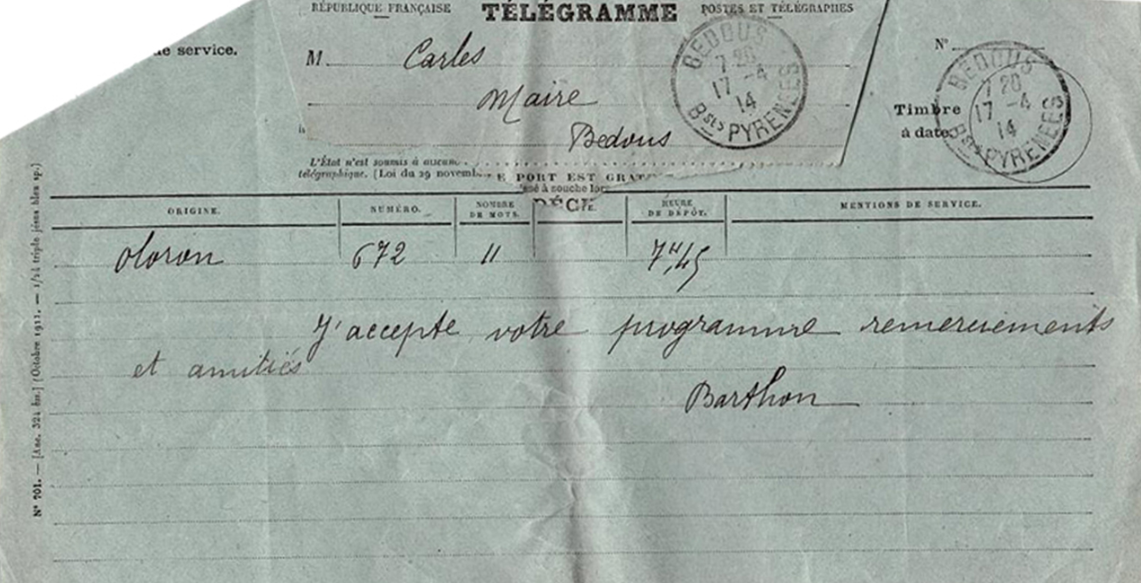 RÉPUBLIQUE FRANÇAISE TÉLÉGRAMME POSTES ET TÉLÉGRAPHES
de service.
M. Carles
Maire
Bedous
BEDOUS
7 20
17 -4
14
Bses PYRENEES
N°
Timbre
à date.
BEDOUS
7 20
17 -4
14
Bses PYRENEES
L'État n'est soumis à aucune
télégraphique. (Loi du 29 novemb
LE PORT EST GRAT
à souche lors
ORIGINE. NUMÉRO. NOMBRE DE MOTS. HEURE DE DÉPÔT. MENTIONS DE SERVICE.
Oloron 672 11 7H45
J'accepte votre programme remerciements
et amitiés
Barthon
N° 701. — [Anc. 324 bis.] (Octobre 1911. — 1/24 triple jésus bleu sp.)